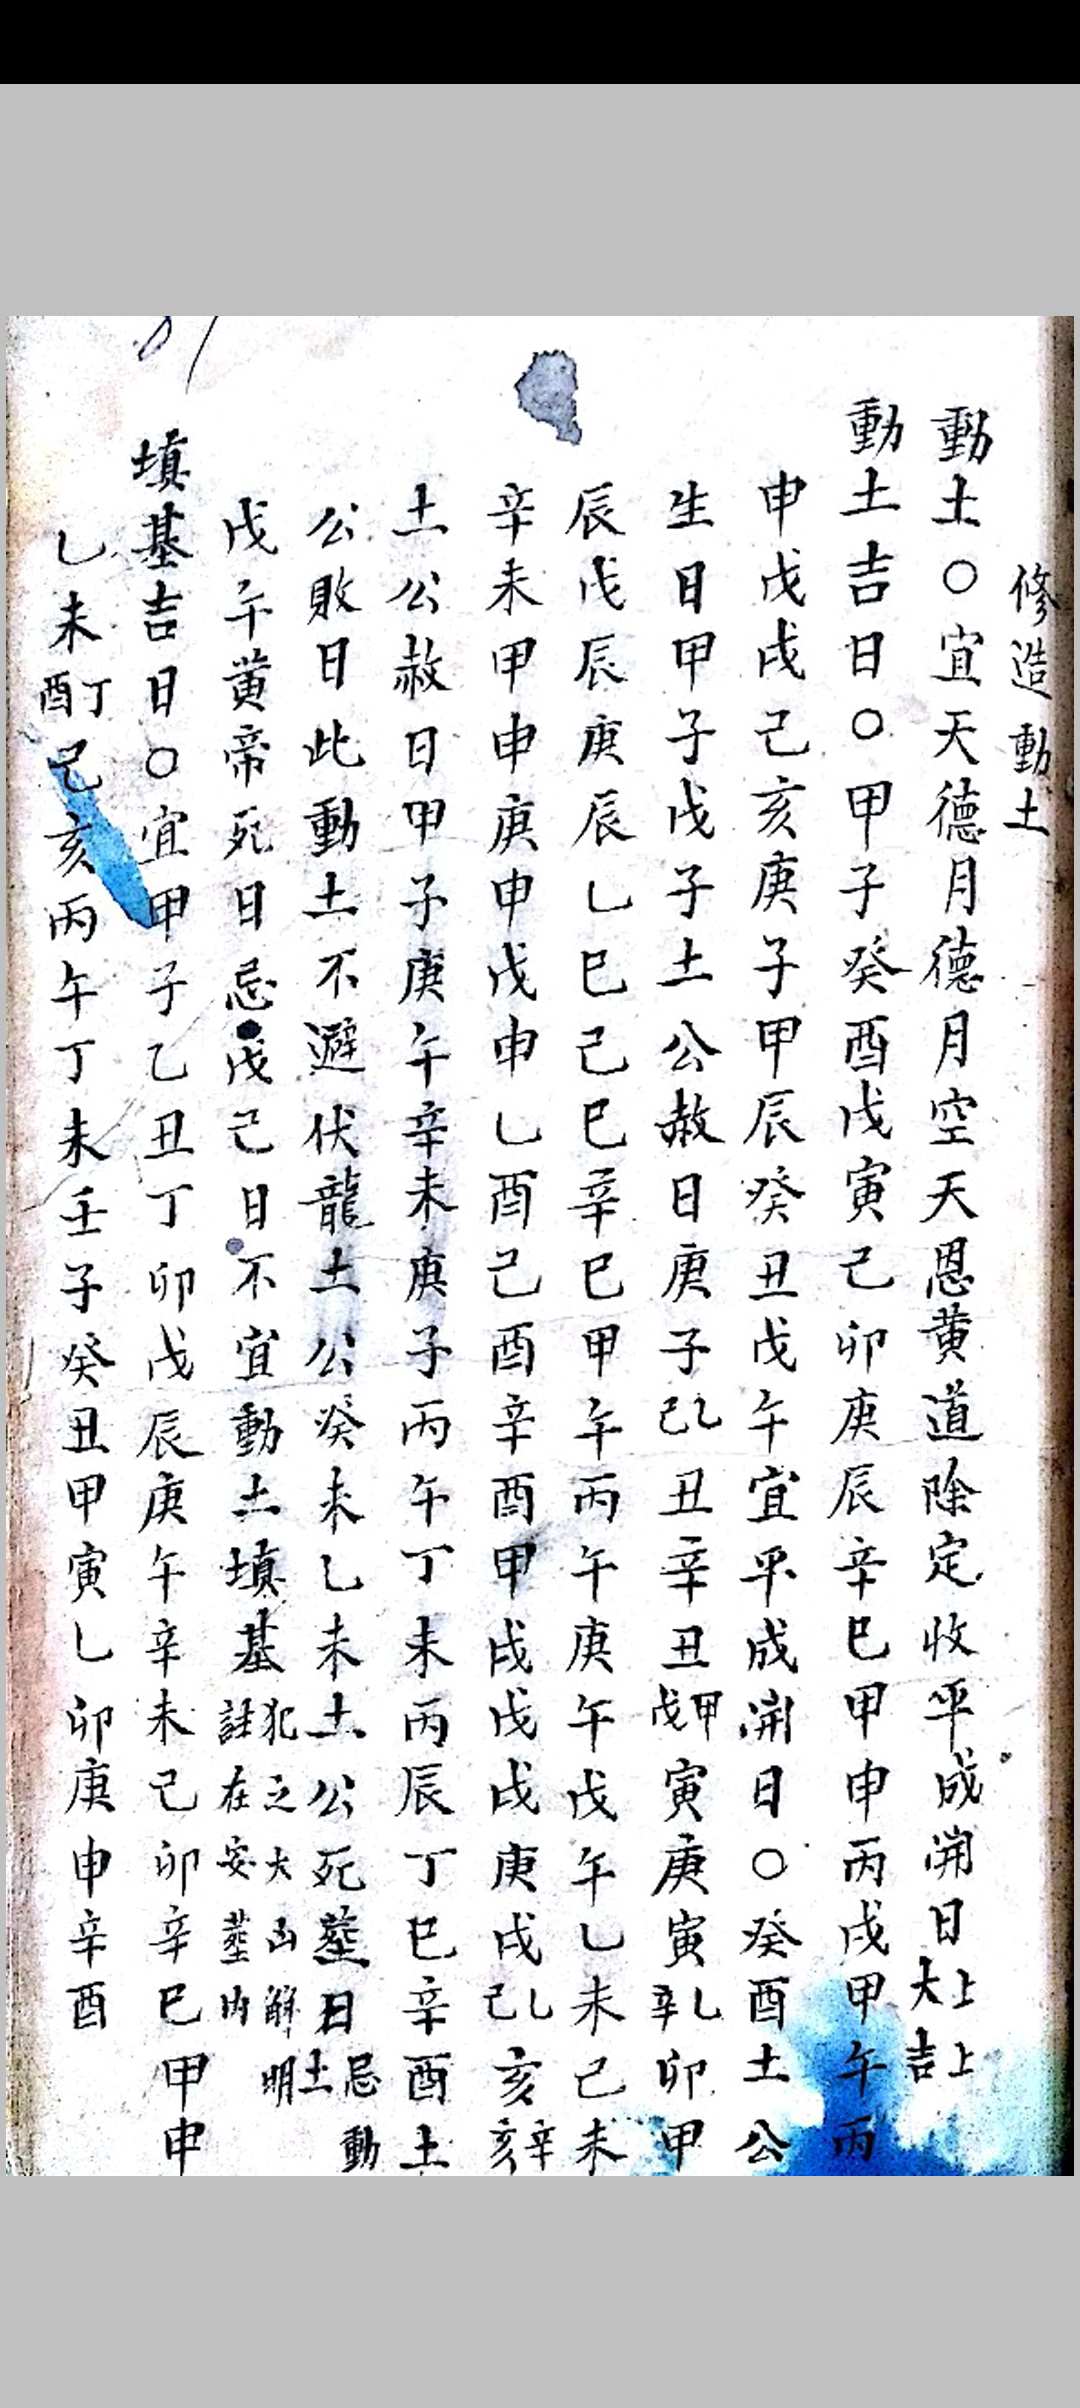 修造動土
動土〇宜天德月德月空天恩黄道除定收平成開日上上大吉
動土吉日〇甲子癸酉戊寅己卯庚辰辛巳甲申丙戌甲午丙
申戊戌己亥庚子甲辰癸丑戊午宜平成開日〇癸酉土公
生日甲子戊子土公赦日庚子乙己丑辛丑甲戊寅庚寅乙辛卯甲
辰戊辰庚辰乙巳己巳辛巳甲午丙午庚午戊午乙未己未
辛未甲申庚申戊申乙酉己酉辛酉甲戌戊戌庚戌乙己亥辛亥
土公赦日甲子庚午辛未庚子丙午丁未丙辰丁巳辛酉土
公敗日此動土不避伏龍土公癸未乙未土公死塟日忌動土
戊午黄帝死日忌戊己日不宜動土填基犯之大凶解明註在安塟内
填基吉日〇宜甲子乙丑丁卯戊辰庚午辛未己卯辛巳甲申
乙未丁酉己亥丙午丁未壬子癸丑甲寅乙卯庚申辛酉